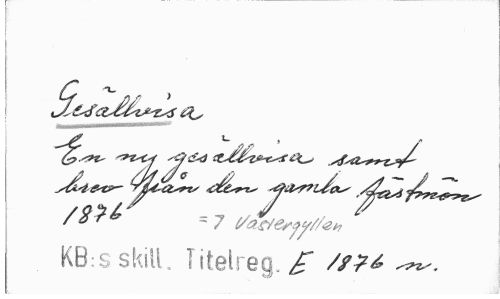 Gesällvisa
En ny gesällvisa samt
brev från den gamla fästmön
1876
= 7 Västergyllen
KB:s skill. Titelreg. E 1876 n.